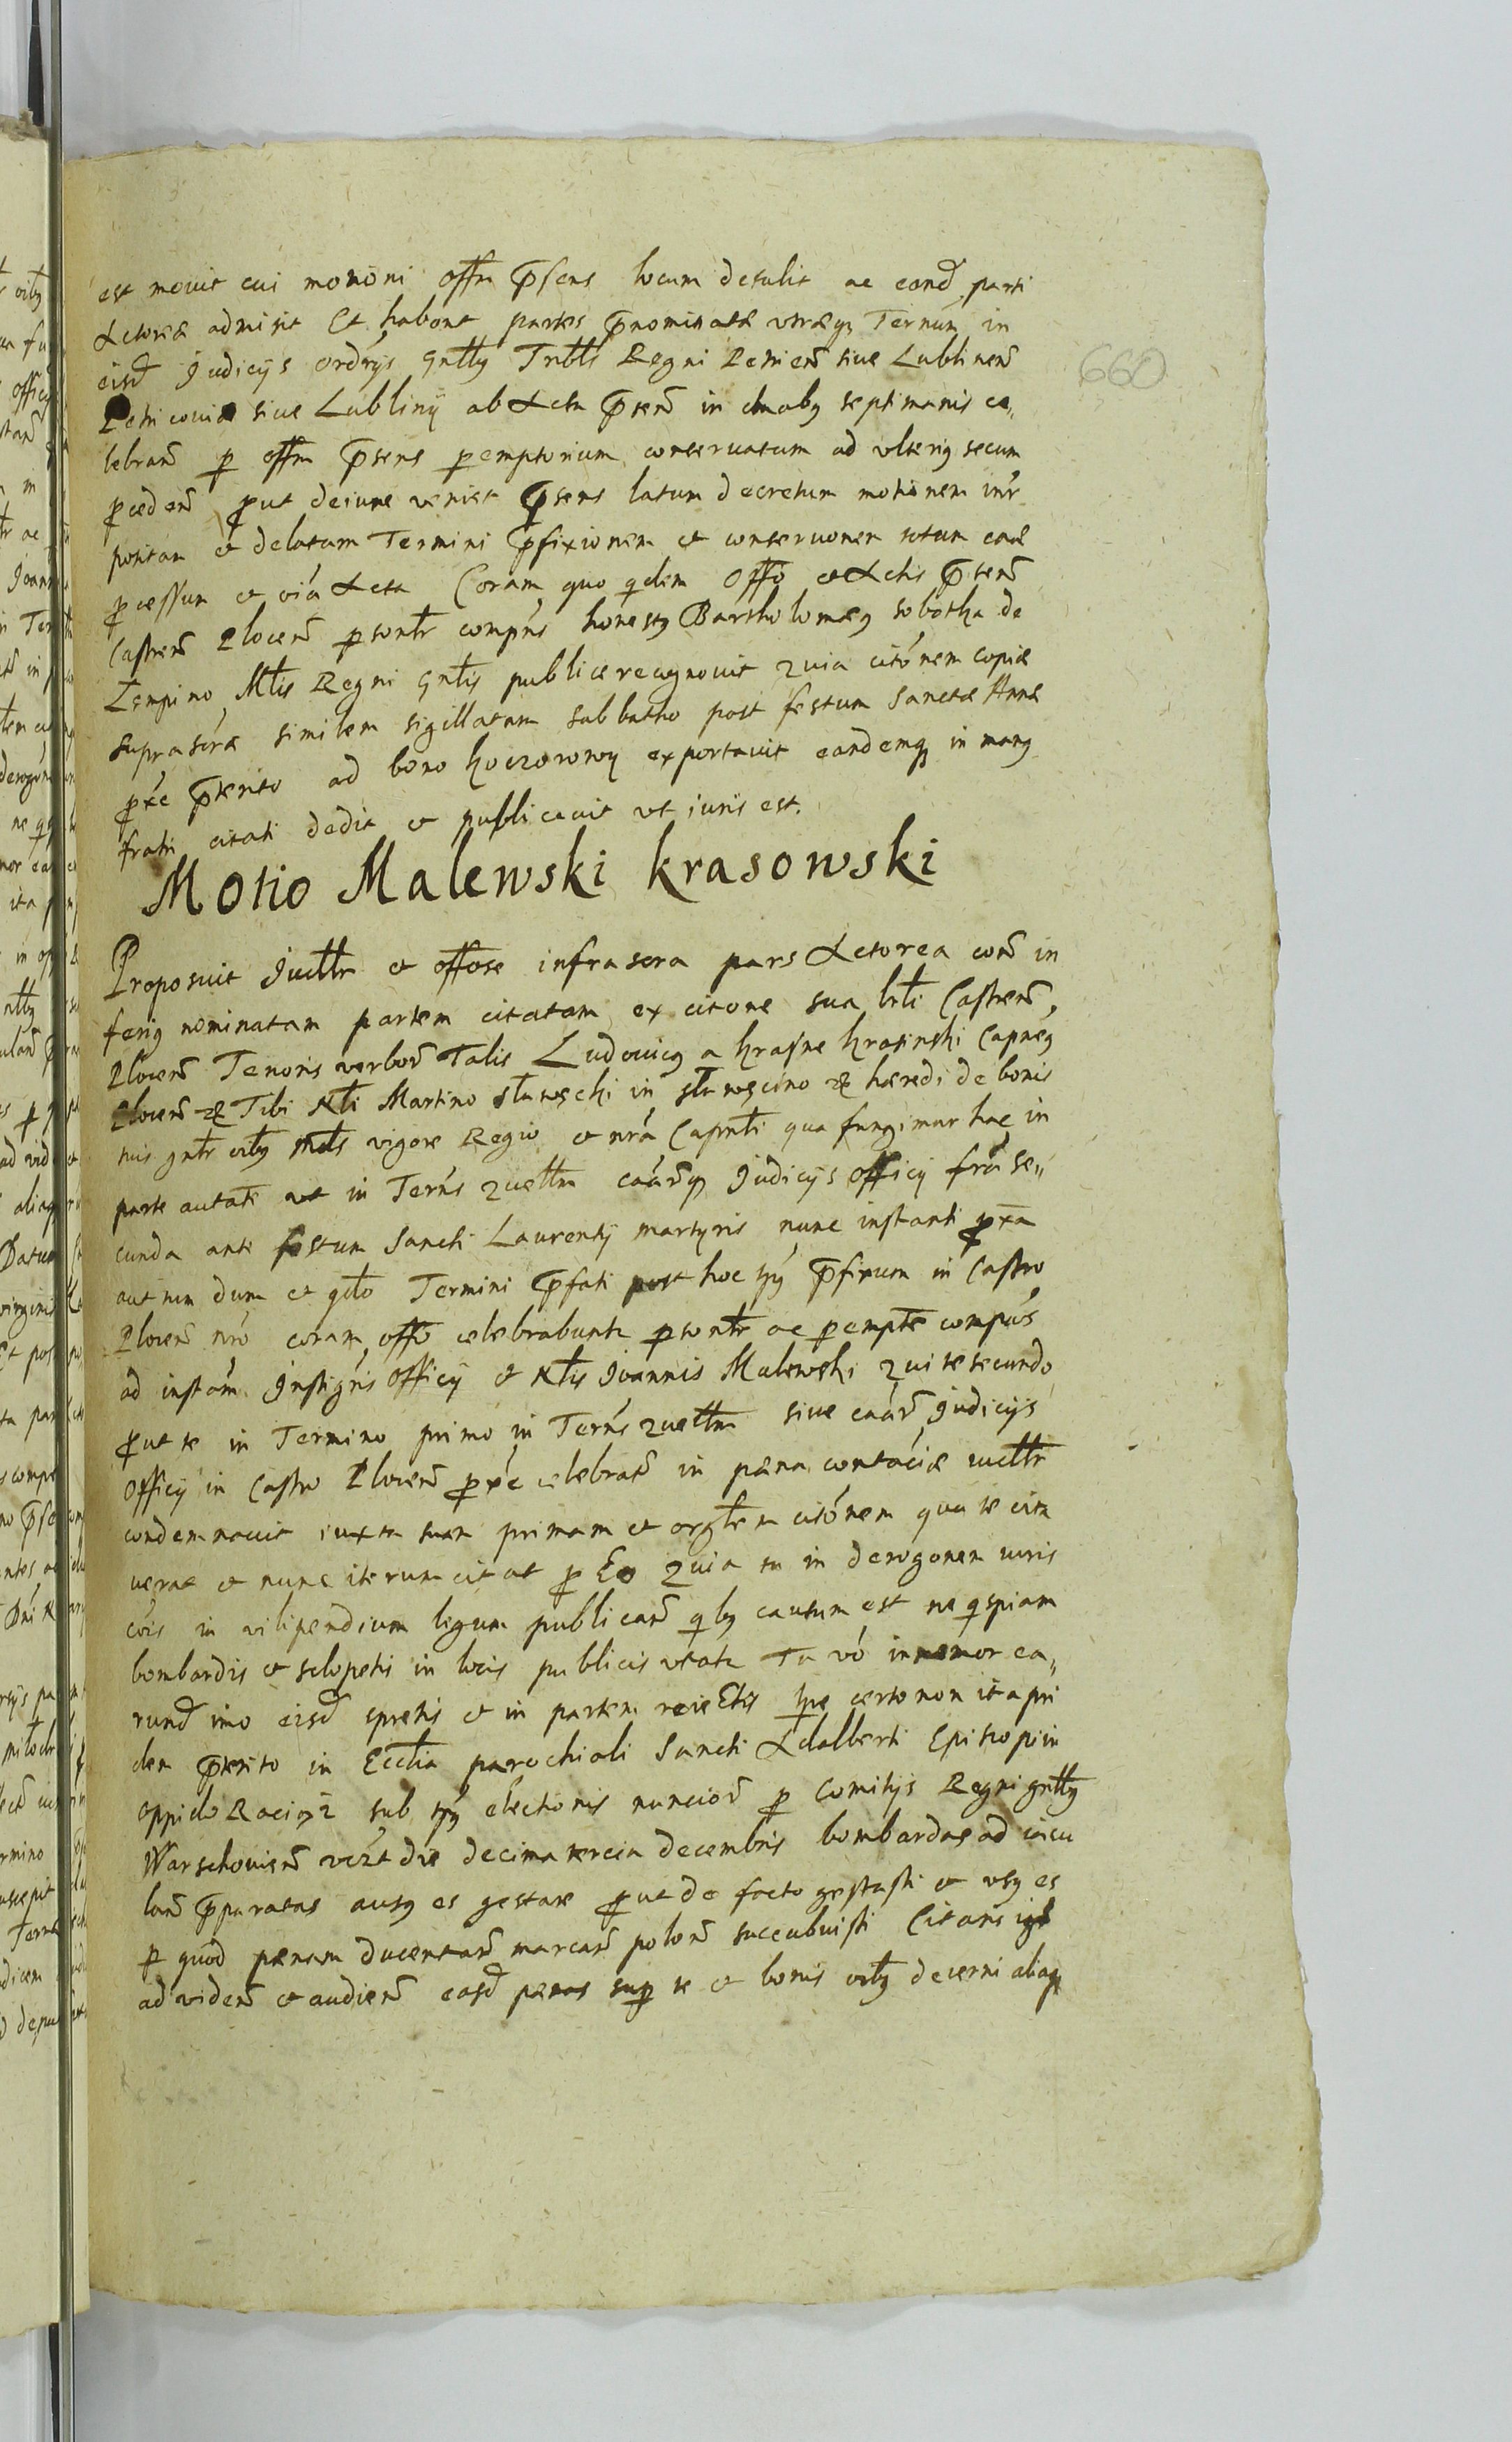 est mouit cui motioni offm p̄sens locum detulit ac eand̄ parti
Actoreæ admisit Et habent partes p̄nominatæ vtræq; Ternum in
eisd̄ Judicijs ordrijs gnłłbg Tribłłs Regni Petricien̄ siue Lublinen̄
Petricouiæ siue Lublinij ab Actu p̄sen̄ in duabg septimanis ce„
lebran̄ p offm p̄sens pemptorium conseruatum ad vlterig secum
pceden̄ put de iure veniet p̄sens latum decretum motionem intr
positam et delatam Termini p̄fixionem et conseruonem totum eme
pcessum et oiá Acta Coram quo qdem Offo et Actis p̄sen̄
Castren̄ Plocen̄ psonłr compńs honestg Bartholomæg Sobotka de
Lempino Młis Regni gnłis publice recognouit Quia citónem copiæ
suprascræ similem sigillatam Sabbatho post festum Sanctæ Annæ
pxé p̄terito ad bona Koczorowy exportauit eandemq; in mang
fratri citati dedit et publicauit vt iuris est.
Motio Malewski Krasowski
Proposuit Jucłłr et offose infrascra pars Actorea con̄ in
ferig nominatam partem citatam ex citone sua łrłi Castren̄
Plocen̄ Tenoris verbor̄ Talis Ludouicg a Krasne Krasinski Capneg
Plocen̄ &c Tibi Nłi Martino Sławęcki in Sławęcino &c hæredi de bonis
tuis gnłr oibg Młs vigore Regio et nrá Capnłi qua fungimur hac in
parte autate vt in Ternís Quełłm caár̄q; Judicijs Officij fría se„
cunda ante festum Sancti Laurentij martyris nunc instanti pxā
aut tum dum et qdo Termini p̄fati post hoc tpg p̄fixum in Castro
Plocen̄ nró coram offo celebrabuntr psonłr ac pempte compús
ad instám Instigrís Officij et Nłis Joannis Malewski Qui te secundo
put te in Termino primo in Ternís Quełłm siue caár̄ Judicijs
Officij in Castro Plocen̄ pxé celebrat̄ in pæna contáciæ iucłłr
condemnauit iuxta suam primam et orgłem citónem qua te cita
uerat et nunc iterum citat p Eo Quia tu in derogonem iuris
cóis in vilipendium legum publicar̄ qibg cautum est ne qispiam
bombardis et sclopetis in locis publicis vtatr Tu vó immemor ea„
rund̄ imo eisd̄ spretis et in partem reiectis tpre certo non ita pri
dem p̄terito in Eccłia parochiali Sancti Adalberti Episcopi in
oppido Raciąż sub tpg electionis nuncior̄ p Comitijs Regni gnłłbg
Warschouien̄ vidzt die decima tercia decembris bombardas ad iacu
lan̄ p̄paratas ausg es gestare put de facto gestasti et vsg es
p quod pænam ducentar̄ marcar̄ polon̄ succubuisti Citaris igł
ad viden̄ et audien̄ easd̄ pænas sup te et bonis oibg decerni aliaq;
660